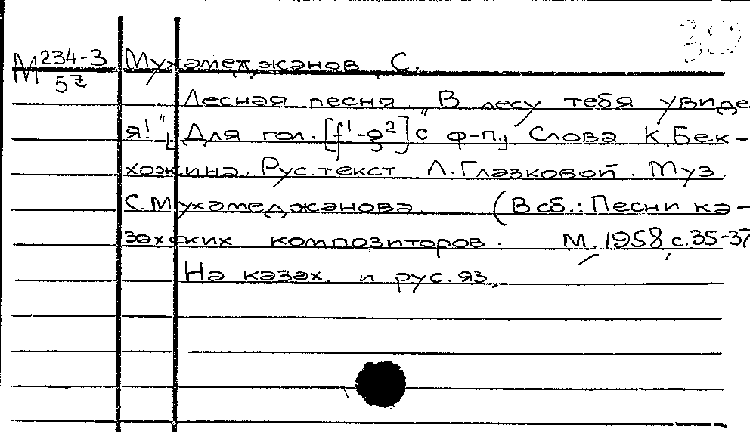 М 234-3/57 Мухамеджанов С.
Лесная песня "В лесу тебя увиде
я!" Для гол. [f¹-g²] с ф-п., Слова К. Бек-
хожина. Рус. текст Л. Глазковой. Муз.
С. Мухамеджанова. (В сб.: Песни ка-
захских композиторов. М. 1958, с. 35-37
На казах. и рус. яз.